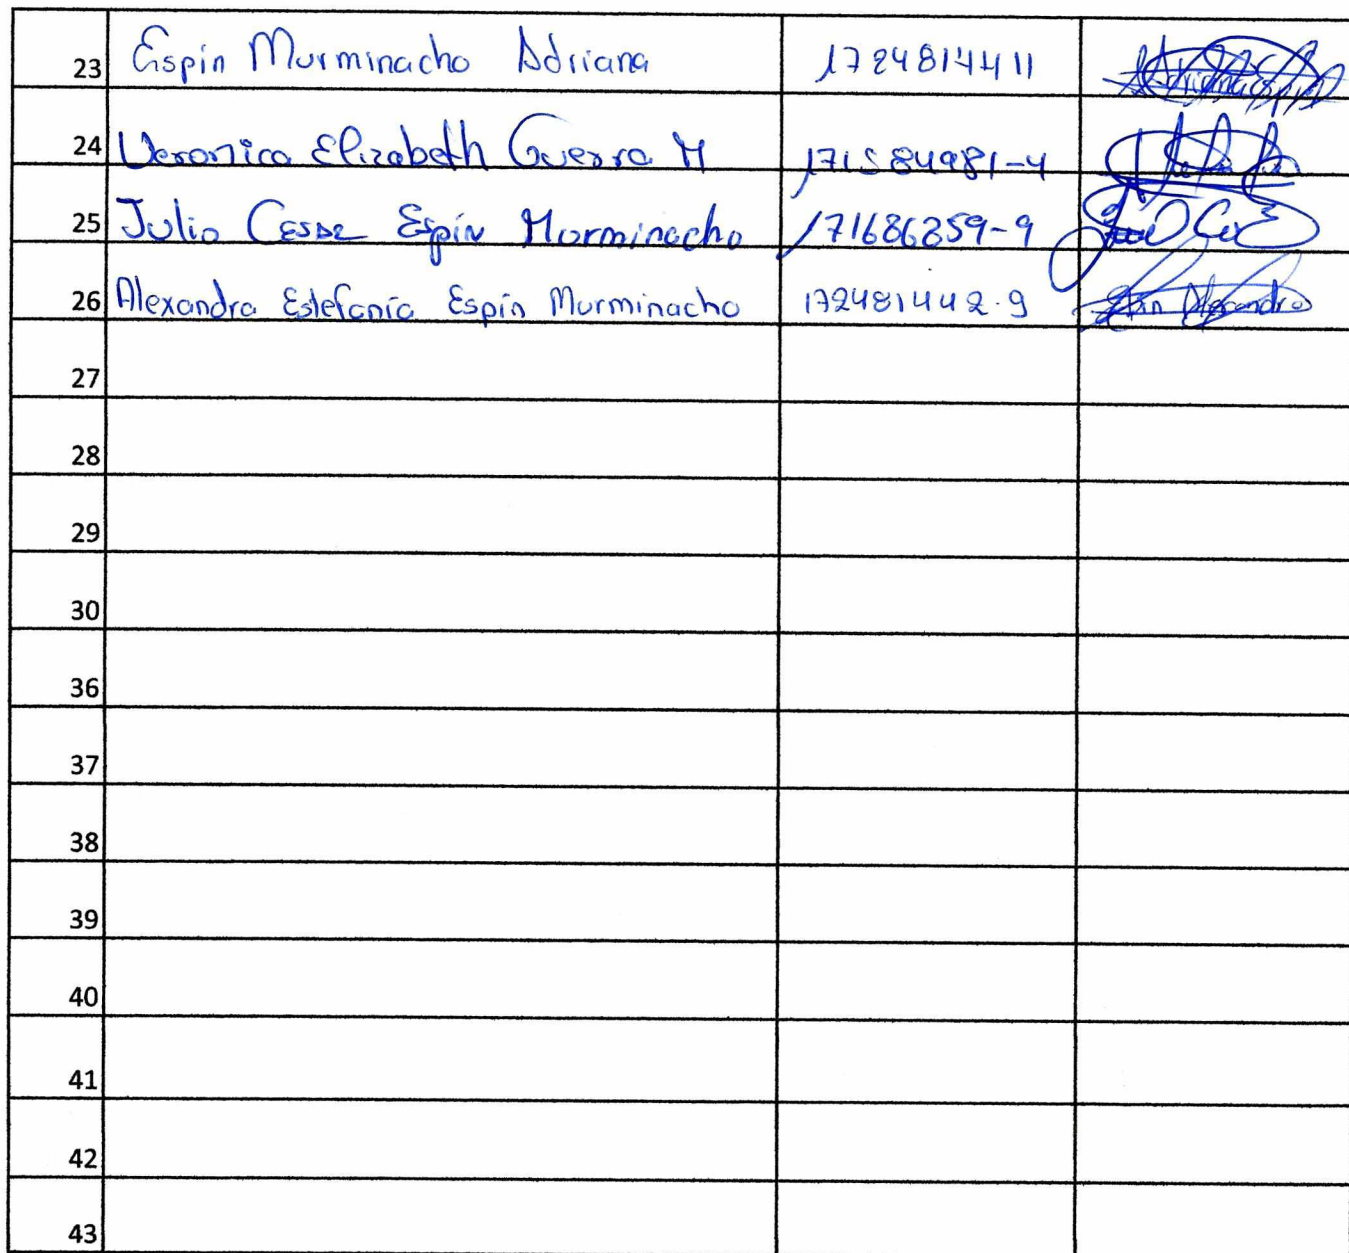 23 Espín Murminacho Adriana 1724814411
24 Veronica Elizabeth Guerra M 171584981-4
25 Julio Cesar Espín Murminacho 171686259-9
26 Alexandra Estefanía Espín Murminacho 172481442-9 Espín Alexandra
27
28
29
30
36
37
38
39
40
41
42
43